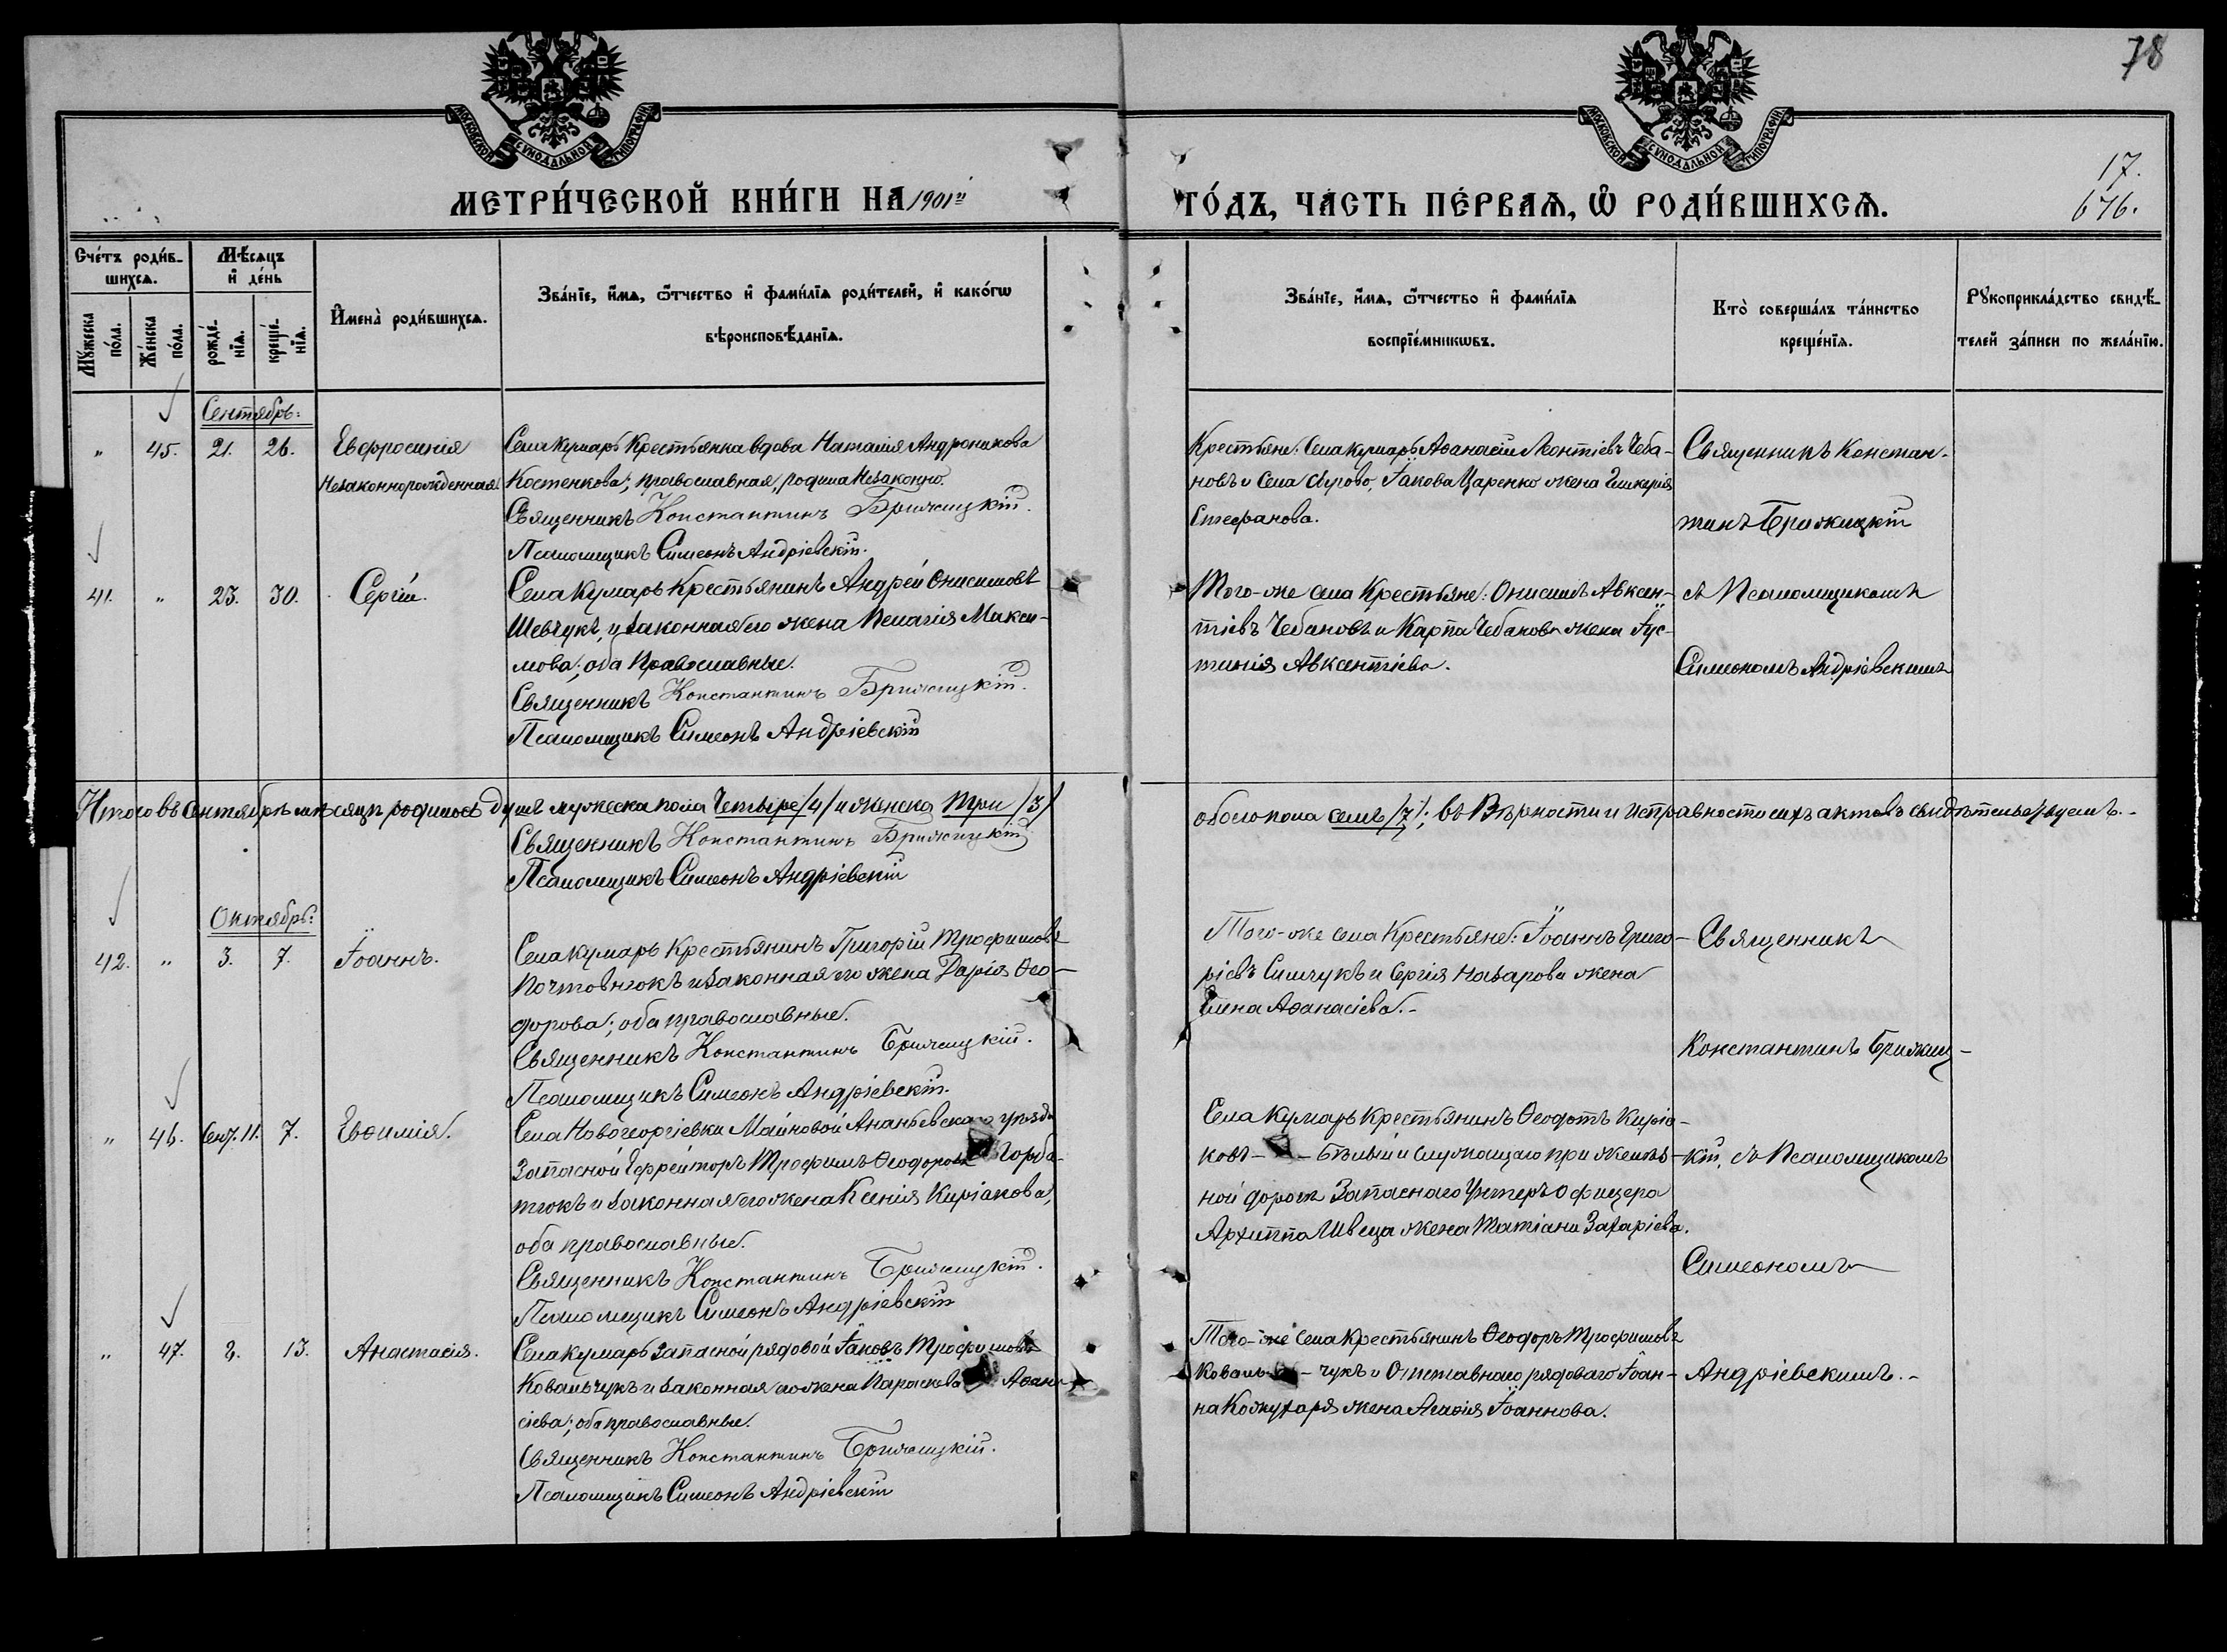 78
МОСКОВСКОЙ СѴНОДАЛЬНОЙ ТИПОГРАФІИ
МОСКОВСКОЙ СѴНОДАЛЬНОЙ ТИПОГРАФІИ
17.
676.
МЕТРИ́ЧЕСКОЙ КНИ́ГИ НА 1901й
ГО́ДЪ, ЧА́СТЬ ПЕ́РВАѦ, Ѡ҆ РОДИ́ВШИХСѦ.
Сче́тъ роди́в-
шихсѧ.
Мꙋ́жеска по́ла.
Же́нска по́ла.
Мѣ́сѧцъ
и҆ де́нь
рожде́-
нїѧ.
креще́-
нїѧ.
И҆мена̀ роди́вшихсѧ.
Зва́нїе, и҆́мѧ, ѻ҆́тчество и҆ фами́лїѧ роди́телей, и҆ како́гѡ
вѣроисповѣ́данїѧ.
Зва́нїе, и҆́мѧ, ѻ҆́тчество и҆ фами́лїѧ
воспрїе́мникѡвъ.
Кто̀ соверша́лъ та́инство
креще́нїѧ.
Рꙋкоприкла́дство свидѣ́-
телей за́писи по жела́нїю.
Сентябрь:
" 45. 21. 26. Евфросинія
Незаконнорожденная.
Села Кумаръ Крестьянка вдова Наталія Андроникова
Костенкова; православная, родила Незаконно.
Священникъ Константинъ Брижицкій.
Псаломщикъ Симеонъ Андріевскій.
Крестьяне: Села Кумаръ Аѳанасій Леонтіевъ Чеба-
новъ и Села Іакова Царенко жена
Стефанова.
Священникъ Констан-
тинъ Брижицкій
41. " 23. 30. Сергій.
Села Кумаръ Крестьянинъ Андрей Онисимовъ
Шевчукъ, и законная его жена Пелагія Макси-
мова; оба Православные.
Священникъ Константинъ Брижицкій.
Псаломщикъ Симеонъ Андріевскій
Того-же села Крестьяне: Онисимъ Авксен-
тіевъ Чебановъ и Карпа Чебанова жена Іус-
тинія Авксентіева.
съ Псаломщикомъ
Симеономъ Андріевскимъ
Итого въ Сентябрѣ мѣсяцѣ родилось душъ мужеска пола Четыре /4/ и женска Три /3/
обоего пола семь /7/; въ Вѣрности и Исправности сихъ актовъ свидѣтельствуемъ.-
Священникъ Константинъ Брижицкій.
Псаломщикъ Симеонъ Андріевскій
Октябрь:
42. " 3. 7. Іоаннъ.
Села Кумаръ Крестьянинъ Григорій Трофимовъ
Почтовнюкъ и Законная его жена Дарія Ѳео-
дорова; оба православные.
Священникъ Константинъ Брижицкій.
Псаломщикъ Симеонъ Андріевскій.
Того-же села Крестьяне: Іоаннъ Григо-
ріевъ Симчукъ и Сергія Назарова жена
Елена Аѳанасіева.-
Священникъ
Константинъ Брижиц-
" 46. Сент. 11. 7. Евѳимія.
Села Новогеоргіевки Майновой Ананьевскаго уѣзда
Запасной Ефрейторъ Трофимъ Ѳеодоровъ Горба-
тюкъ и Законная его жена Ксенія Киріакова,
оба православные.
Священникъ Константинъ Брижицкій.
Псаломщикъ Симеонъ Андріевскій
Села Кумаръ Крестьянинъ Ѳеодотъ Киріа-
ковъ - - Бѣлый и служащаго при желѣз-
ной дорогѣ Запаснаго Унтеръ Офицера
Архиппа Швеца жена Татіана Захаріева.
кій, съ Псаломщикомъ
Симеономъ
" 47. 2. 13. Анастасія.
Села Кумаръ Запасной рядовой Іаковъ Трофимовъ
Ковальчукъ и Законная его жена Параскева Аѳана
сіева; оба православные.
Священникъ Константинъ Брижицкій.
Псаломщикъ Симеонъ Андріевскій
Того-же села Крестьянинъ Ѳеодоръ Трофимовъ
Коваль - чукъ и Отставнаго рядоваго Іоан-
на Кожухаря жена Агафія Іоаннова.
Андріевскимъ.-